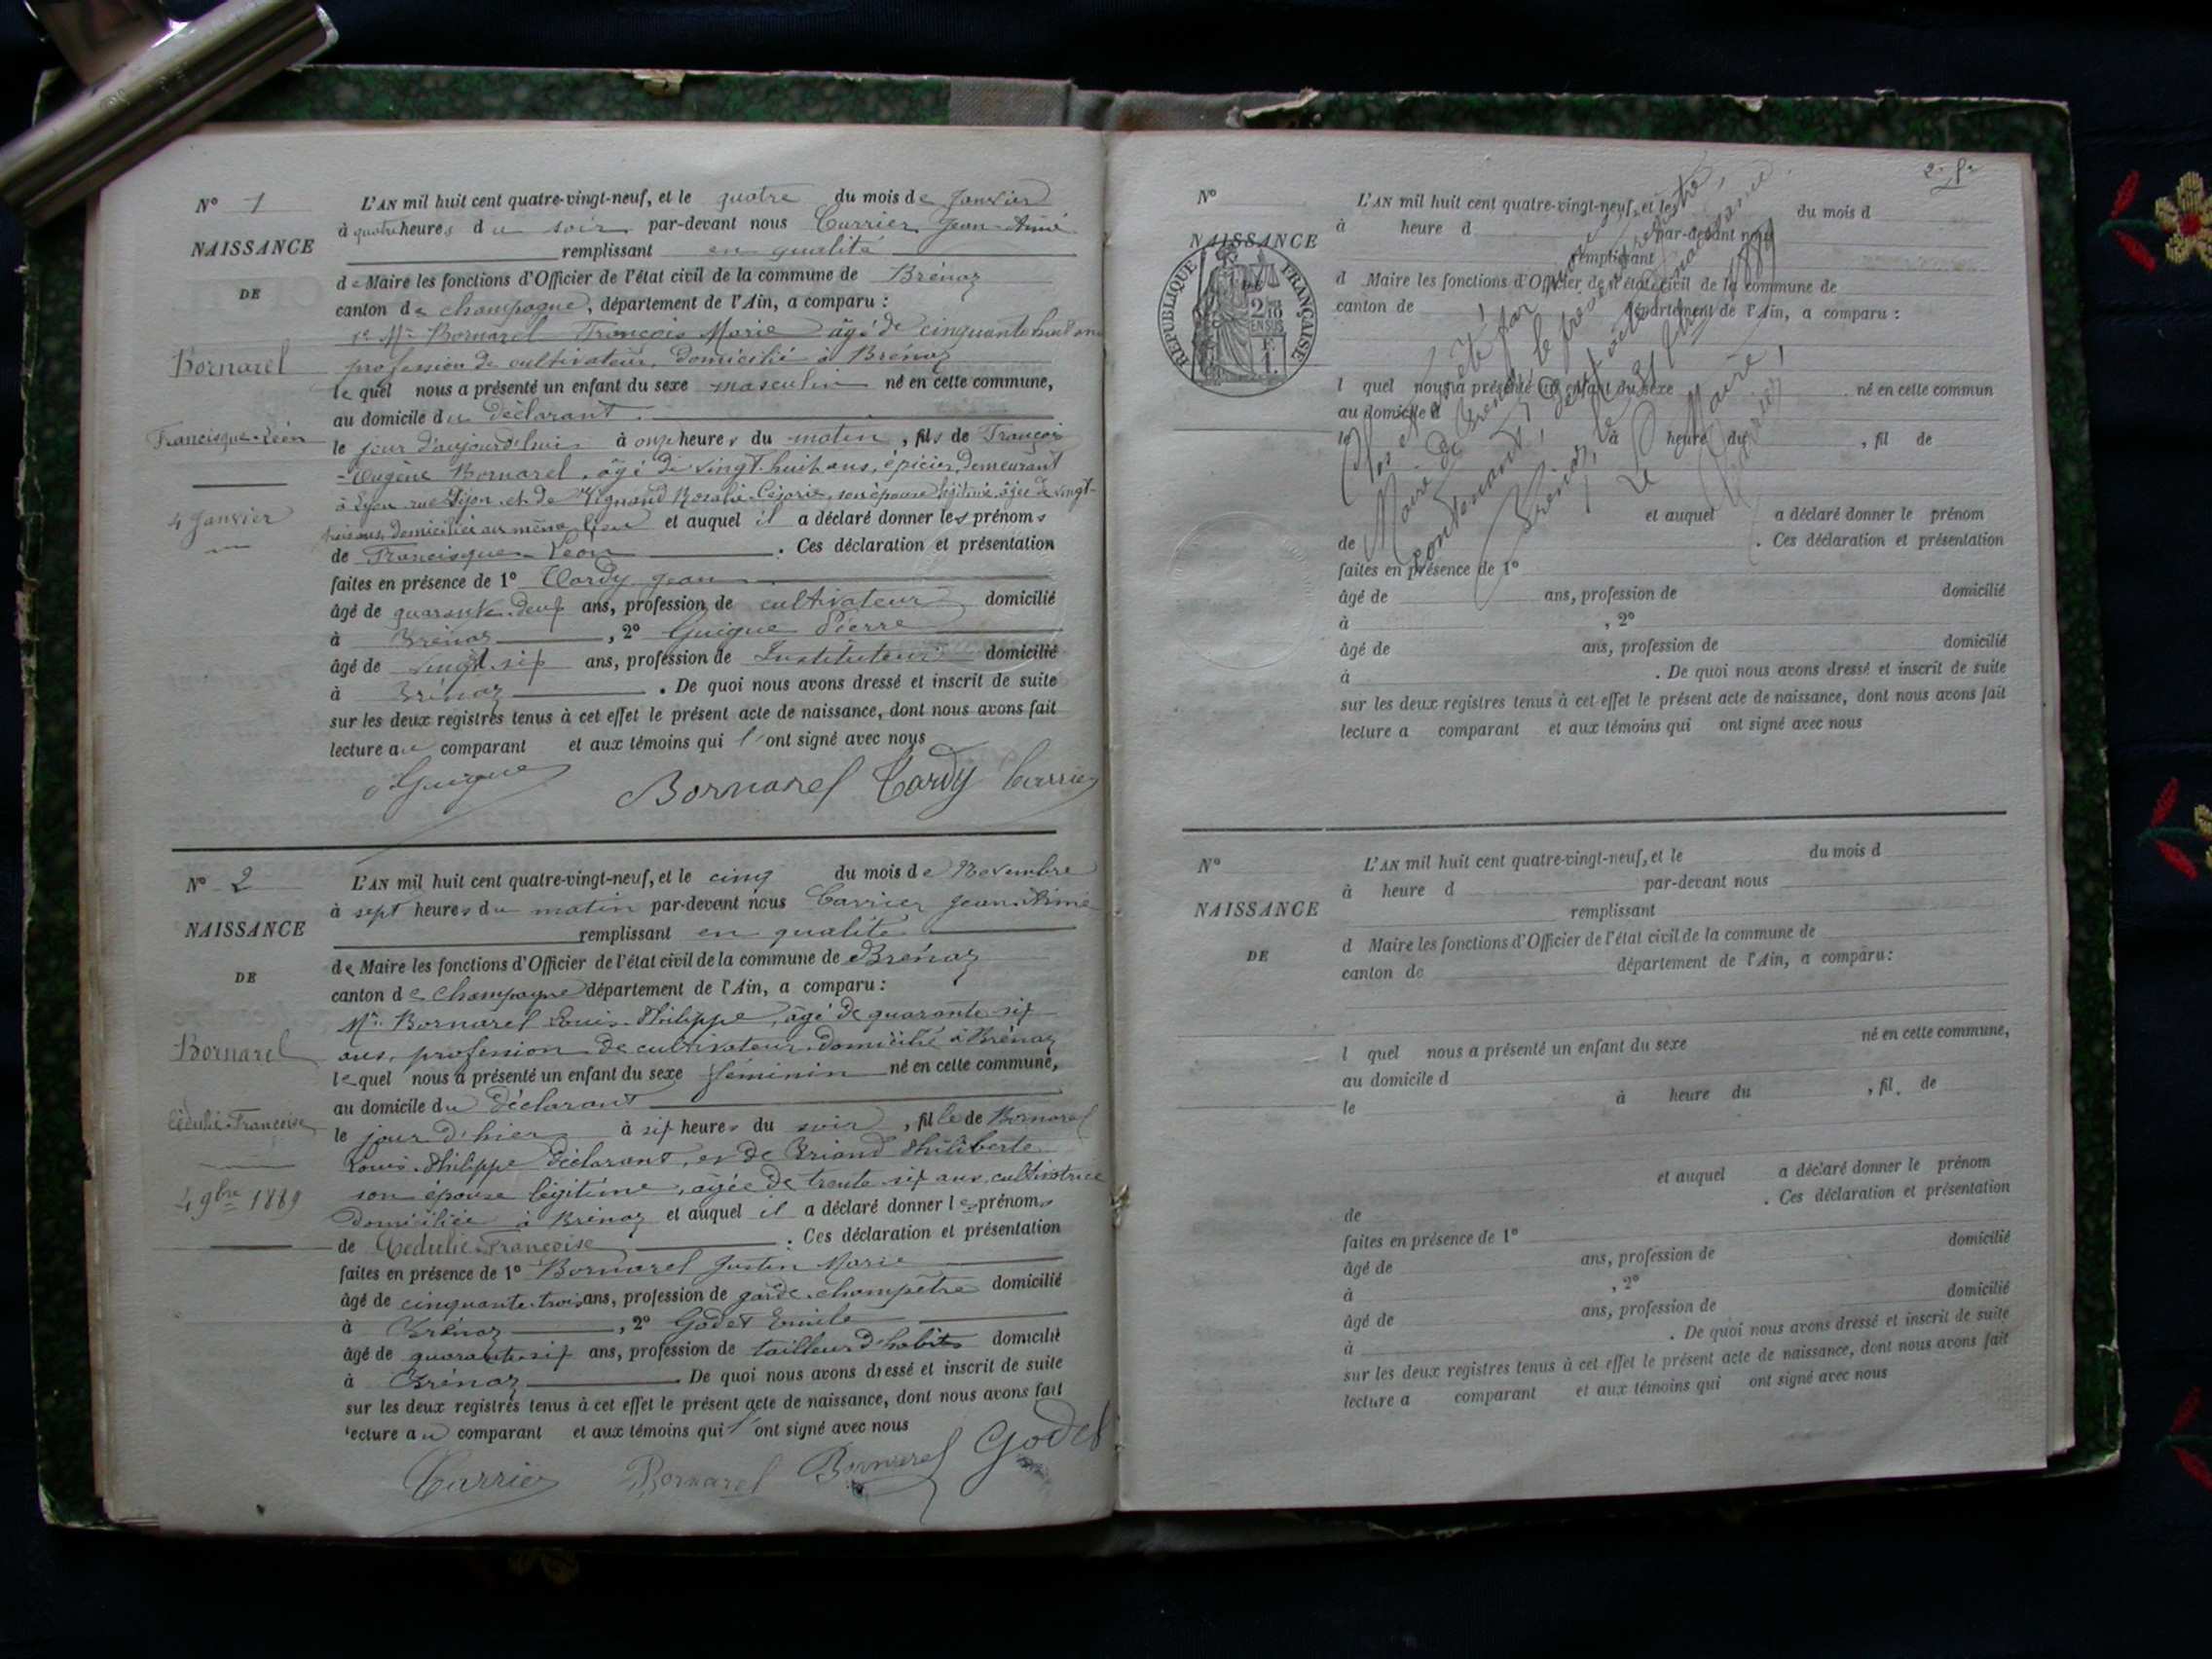 N° 1
L'AN mil huit cent quatre-vingt-neuf, et le quatre du mois de Janvier
à quatre heures du soir par-devant nous Carrier Jean-Aimé
NAISSANCE
remplissant en qualité
DE
de Maire les fonctions d'Officier de l'état civil de la commune de Brénaz
canton de Champagne, département de l'Ain, a comparu :
Mr Bornarel François Marie âgé de cinquante huit ans
Bornarel
profession de cultivateur, domicilié à Brénaz
lequel nous a présenté un enfant du sexe masculin né en cette commune,
au domicile du déclarant.
Francisque-Léon
le jour d'aujourd'hui à onze heures du matin, fils de François
-Eugène Bornarel, âgé de vingt-huit ans, épicier, demeurant
à Lyon rue Dijon, et de Rosalie son épouse légitime, âgée de vingt-
4 Janvier
ans, domiciliée au même lieu et auquel il a déclaré donner les prénoms
de Francisque Léon. Ces déclaration et présentation
faites en présence de 1° Tardy Jean
âgé de quarante-deux ans, profession de cultivateur domicilié
à Brénaz, 2° Guigue Pierre
âgé de vingt-six ans, profession de Instituteur domicilié
à Brénaz. De quoi nous avons dressé et inscrit de suite
sur les deux registres tenus à cet effet le présent acte de naissance, dont nous avons fait
lecture au comparant et aux témoins qui l'ont signé avec nous
Guigue Bornarel Tardy Carrier
N° 2
L'AN mil huit cent quatre-vingt-neuf, et le cinq du mois de Novembre
à sept heures du matin par-devant nous Carrier Jean Aimé
NAISSANCE
remplissant en qualité
DE
de Maire les fonctions d'Officier de l'état civil de la commune de Brénaz
canton de Champagne département de l'Ain, a comparu :
Mr Bornarel Louis-Philippe, âgé de quarante-six
Bornarel
ans, profession de cultivateur domicilié à Brénaz
lequel nous a présenté un enfant du sexe féminin né en cette commune,
au domicile du déclarant
Cédulie-Françoise
le jour d'hier à six heures du soir, fille de Bornarel
Louis-Philippe déclarant, et de Briand Philiberte
son épouse légitime, âgée de trente-six ans, cultivatrice
4 9bre 1889
domiciliée à Brénaz et auquel il a déclaré donner les prénoms
de Cédulie-Françoise. Ces déclaration et présentation
faites en présence de 1° Bornarel Justin Marie
âgé de cinquante-trois ans, profession de garde-champêtre domicilié
à Brénaz, 2° Godet Emile
âgé de quarante-six ans, profession de tailleur d'habits domicilié
à Brénaz. De quoi nous avons dressé et inscrit de suite
sur les deux registres tenus à cet effet le présent acte de naissance, dont nous avons fait
lecture au comparant et aux témoins qui l'ont signé avec nous
Carrier Bornarel Bornarel Godet
N°
L'AN mil huit cent quatre-vingt-neuf, et le du mois d
à heure d par-devant nous
NAISSANCE
remplissant
REPUBLIQUE FRANÇAISE
2/10 EN SUS
d Maire les fonctions d'Officier de l'état civil de la commune de
canton de département de l'Ain, a comparu :
l quel nous a présenté un enfant du sexe né en cette commun
au domicile d
le à heure du , fil de
et auquel a déclaré donner le prénom
de . Ces déclaration et présentation
faites en présence de 1°
âgé de ans, profession de domicilié
à , 2°
âgé de ans, profession de domicilié
à . De quoi nous avons dressé et inscrit de suite
sur les deux registres tenus à cet effet le présent acte de naissance, dont nous avons fait
lecture a comparant et aux témoins qui ont signé avec nous
Clos et arrêté par nous
Maire de Brénaz, le présent registre,
contenant deux actes de naissance.
Brénaz, le 31 1889
Le Maire,
Carrier
N°
L'AN mil huit cent quatre-vingt-neuf, et le du mois d
à heure d par-devant nous
NAISSANCE
remplissant
DE
d Maire les fonctions d'Officier de l'état civil de la commune de
canton de département de l'Ain, a comparu :
l quel nous a présenté un enfant du sexe né en cette commune,
au domicile d
le à heure du , fil de
et auquel a déclaré donner le prénom
de . Ces déclaration et présentation
faites en présence de 1°
âgé de ans, profession de domicilié
à , 2°
âgé de ans, profession de domicilié
à . De quoi nous avons dressé et inscrit de suite
sur les deux registres tenus à cet effet le présent acte de naissance, dont nous avons fait
lecture a comparant et aux témoins qui ont signé avec nous